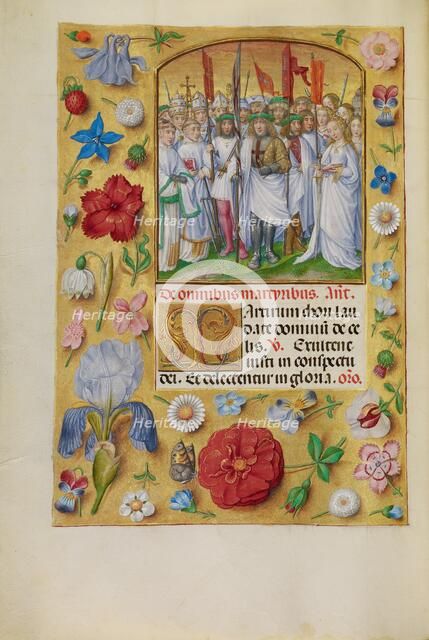 De omnibus martyribus. Añt.
Martirum chori lau
date dominũ de ce
lis. V. Exultent
iusti in conspectu
dei. Et delectentur in gloria. oro.
Heritage
Heritage
Heritage
Heritage
Heritage
Heritage